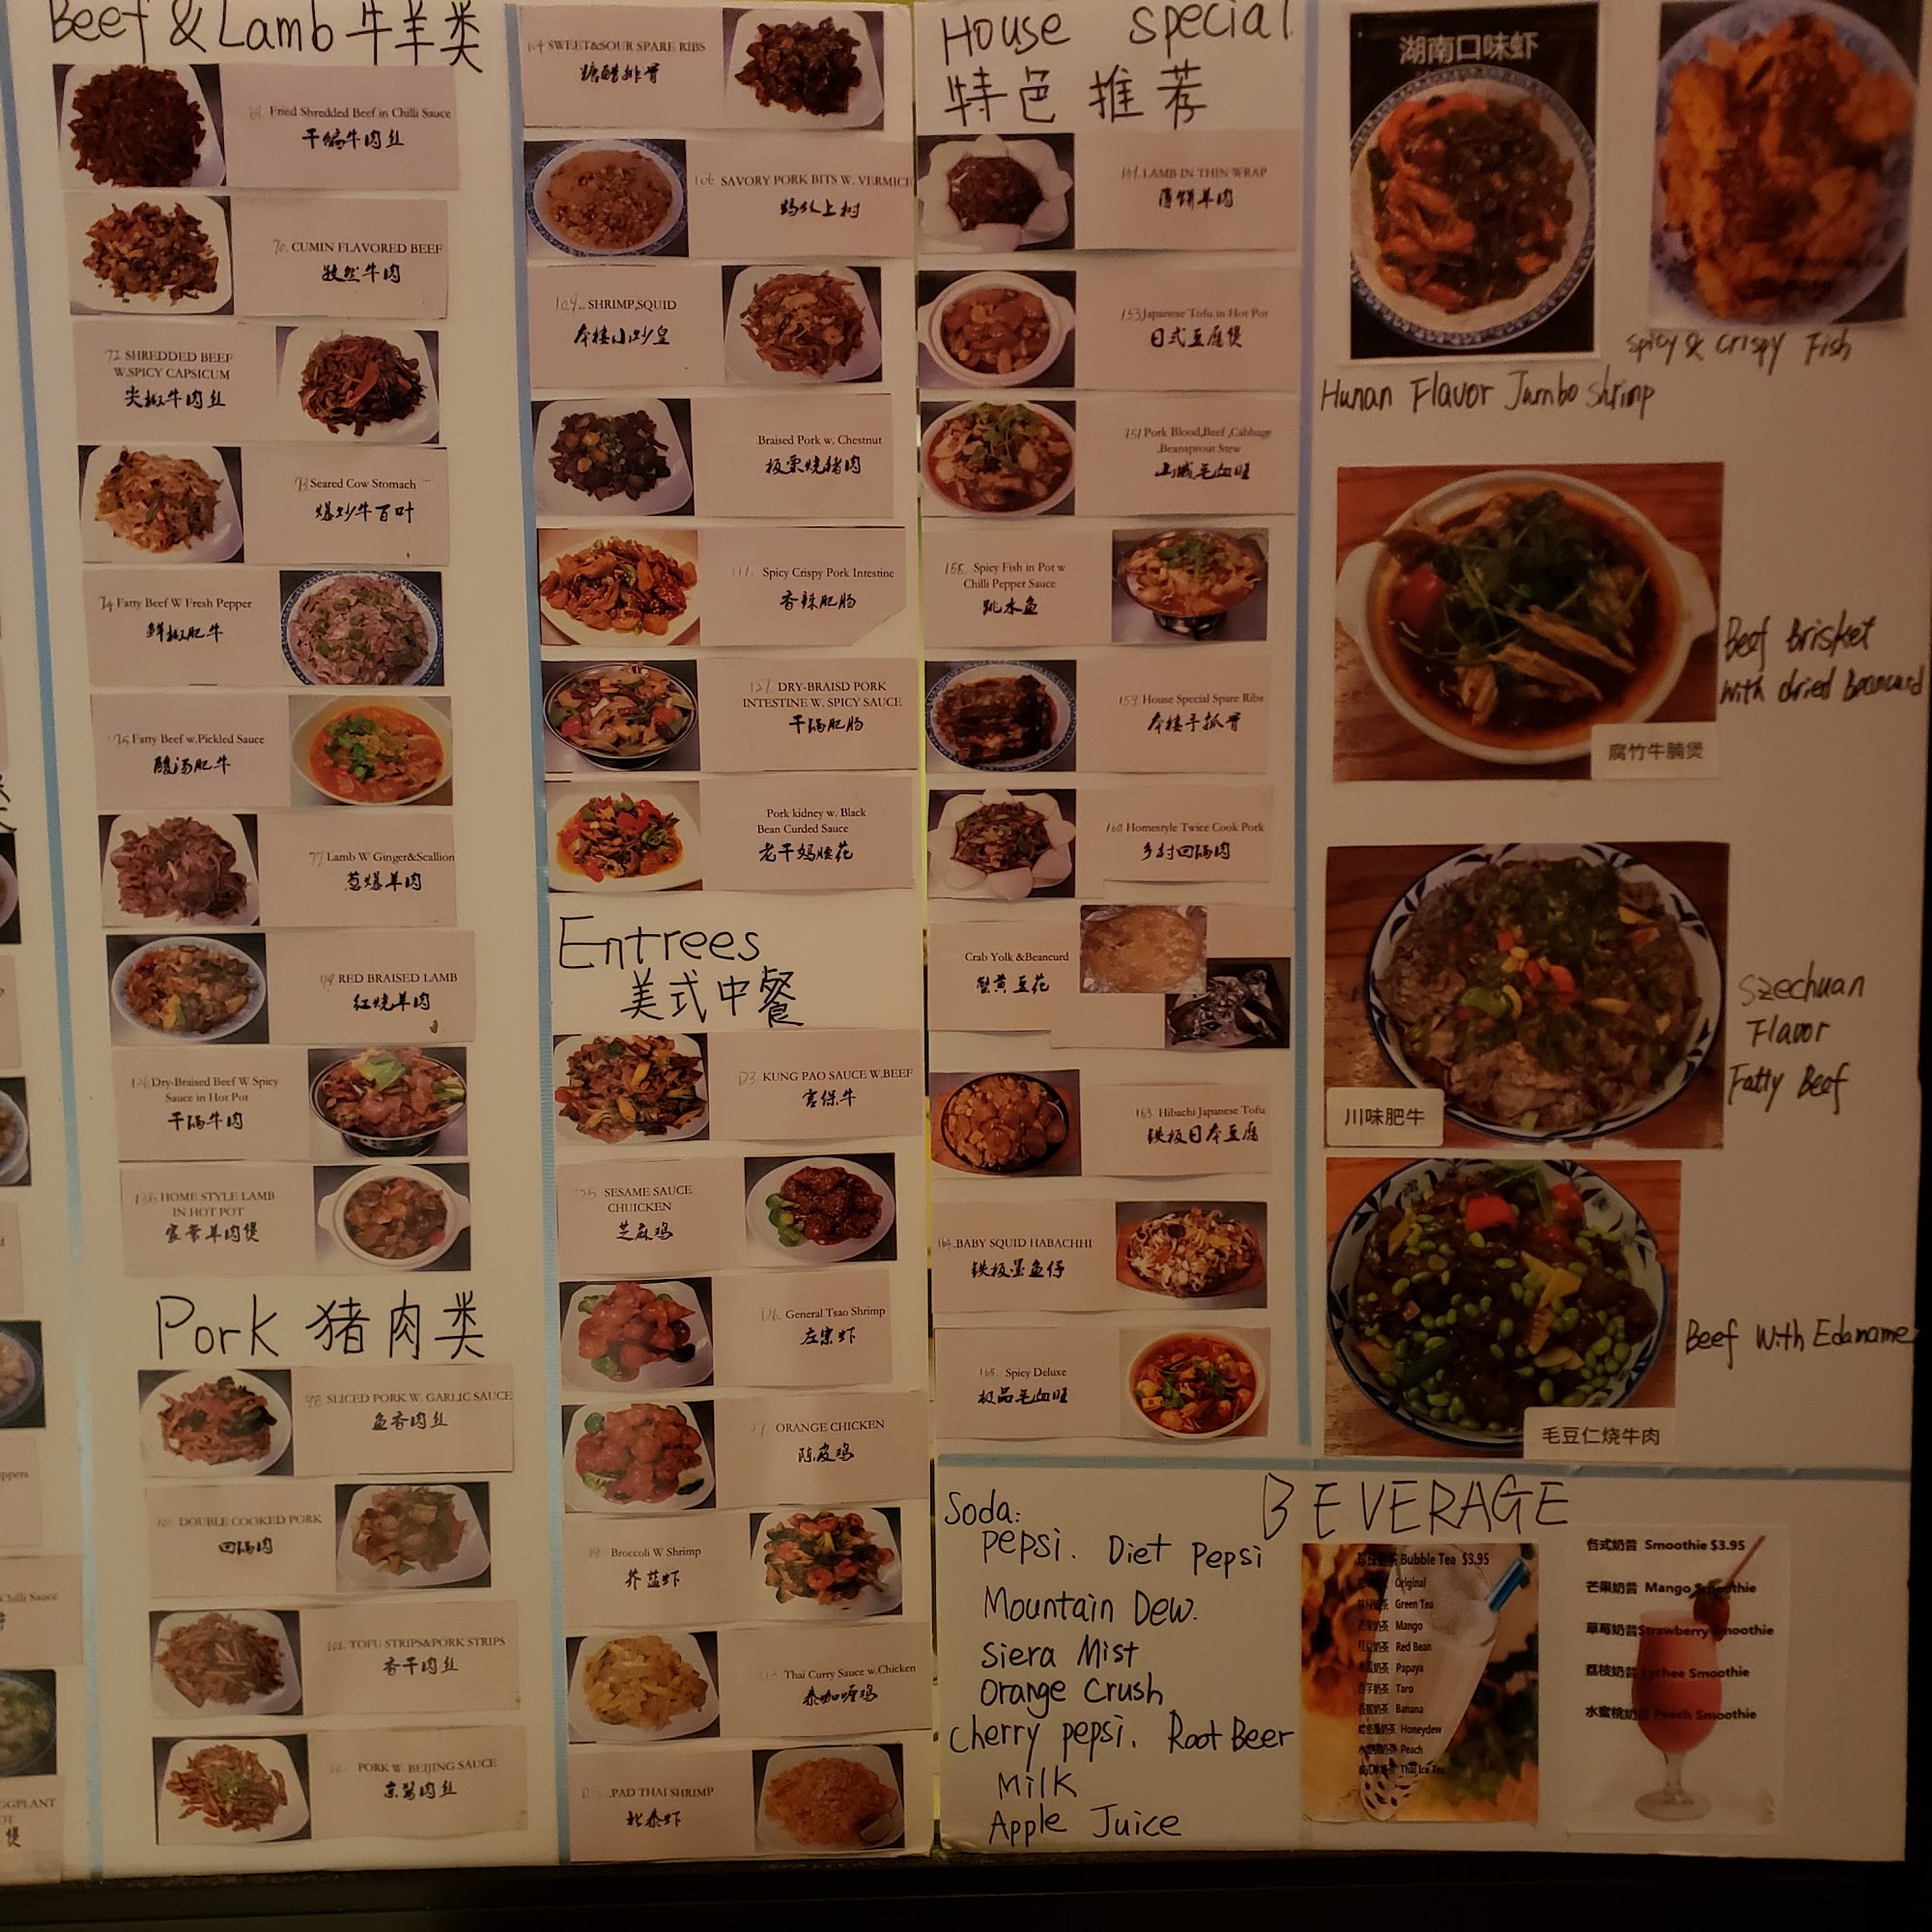 Beef & Lamb 牛羊类
Fried Shredded Beef in Chilli Sauce
干煸牛肉丝
70. CUMIN FLAVORED BEEF
孜然牛肉
72 SHREDDED BEEF
W.SPICY CAPSICUM
尖椒牛肉丝
73 Seared Cow Stomach
爆炒牛百叶
74 Fatty Beef W Fresh Pepper
鲜椒肥牛
75 Fatty Beef w.Pickled Sauce
酸汤肥牛
77 Lamb W Ginger&Scallion
葱爆羊肉
RED BRAISED LAMB
红烧羊肉
Dry-Braised Beef W Spicy
Sauce in Hot Pot
干锅牛肉
HOME STYLE LAMB
IN HOT POT
家常羊肉煲
Pork 猪肉类
SLICED PORK W. GARLIC SAUCE
鱼香肉丝
DOUBLE COOKED PORK
回锅肉
TOFU STRIPS&PORK STRIPS
香干肉丝
PORK W. BEIJING SAUCE
京酱肉丝
104 SWEET&SOUR SPARE RIBS
糖醋排骨
106. SAVORY PORK BITS W. VERMICE
蚂蚁上树
109.. SHRIMP,SQUID
本楼小炒皇
Braised Pork w. Chestnut
板栗烧猪肉
111. Spicy Crispy Pork Intestine
香辣肥肠
127. DRY-BRAISD PORK
INTESTINE W. SPICY SAUCE
干锅肥肠
Pork kidney w. Black
Bean Curded Sauce
老干妈腰花
Entrees
美式中餐
D3 KUNG PAO SAUCE W.BEEF
宫保牛
SESAME SAUCE
CHUICKEN
芝麻鸡
General Tsao Shrimp
左宗虾
ORANGE CHICKEN
陈皮鸡
Broccoli W Shrimp
芥蓝虾
Thai Curry Sauce w.Chicken
泰咖喱鸡
.PAD THAI SHRIMP
House Special
特色推荐
141. LAMB IN THIN WRAP
薄饼羊肉
153 Japanese Tofu in Hot Pot
日式豆腐煲
151 Pork Blood,Beef ,Cabbage
,Beansprout Stew
山城毛血旺
158. Spicy Fish in Pot w
Chilli Pepper Sauce
跳水鱼
159. House Special Spare Ribs
本楼手抓骨
160 Homestyle Twice Cook Pork
乡村回锅肉
Crab Yolk &Beancurd
蟹黄豆花
163. Hibachi Japanese Tofu
铁板日本豆腐
164. BABY SQUID HABACHHI
铁板墨鱼仔
165. Spicy Deluxe
极品毛血旺
湖南口味虾
Hunan Flavor Jumbo Shrimp
Spicy & Crispy Fish
Beef Brisket
with dried Beancurd
腐竹牛腩煲
Szechuan
Flavor
Fatty Beef
川味肥牛
Beef With Edamame
毛豆仁烧牛肉
BEVERAGE
Soda:
Pepsi. Diet Pepsi
Mountain Dew.
Siera Mist
Orange Crush
Cherry pepsi. Root Beer
Milk
Apple Juice
Bubble Tea $3.95
Original
Green Tea
Mango
Red Bean
Papaya
Taro
Banana
Honeydew
Peach
Thai Ice Tea
各式奶昔 Smoothie $3.95
芒果奶昔 Mango Smoothie
草莓奶昔Strawberry Smoothie
荔枝奶昔 Lychee Smoothie
水蜜桃奶昔 Peach Smoothie